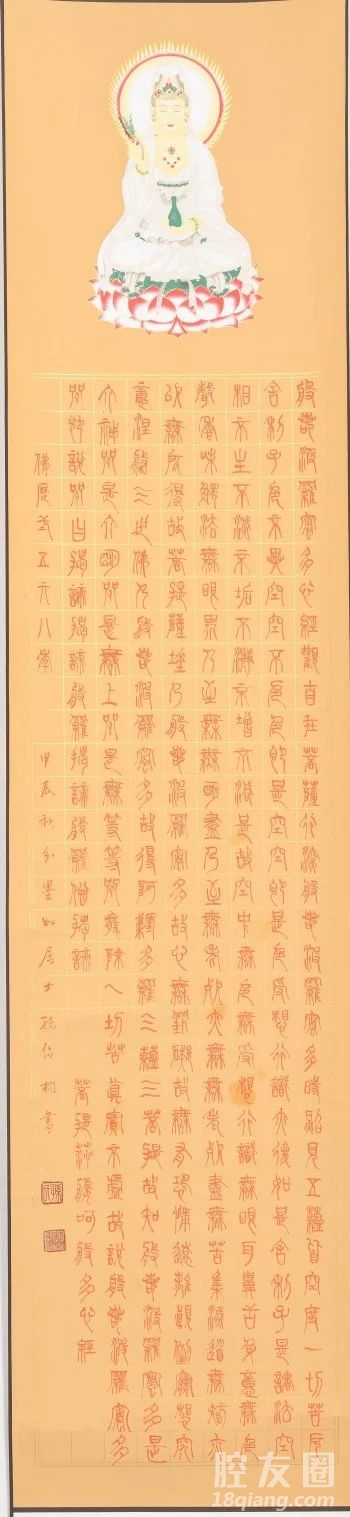 般若波羅蜜多心經觀自在菩薩行深般若波羅蜜多時照見五蘊皆空度一切苦厄
舍利子色不異空空不色色即是空空即是色受想行識亦復如是舍利子是諸法空
相不生不滅不垢不淨不增不減是故空中無色無受想行識無眼耳鼻舌身意無色
聲香味觸法無眼界乃至無無明盡乃至無老死亦無無老死盡無苦集滅道無智亦
以無所得故菩提薩埵乃般若波羅蜜多故心無罣礙故無有恐怖遠離顛倒夢想究
竟涅般三世佛乃般若波羅蜜多故得阿耨多羅三藐三菩提故知般若波羅蜜多是
大神咒是大明咒是無上咒是無等等咒能除一切苦真實不虛故說般若波羅蜜多
咒即說咒曰揭諦揭諦般羅揭諦般羅僧揭諦
菩提薩婆訶般若多心經
佛歷二五六八年
甲辰秋分墨如居士孫村書
腔友圈
18qiang.com